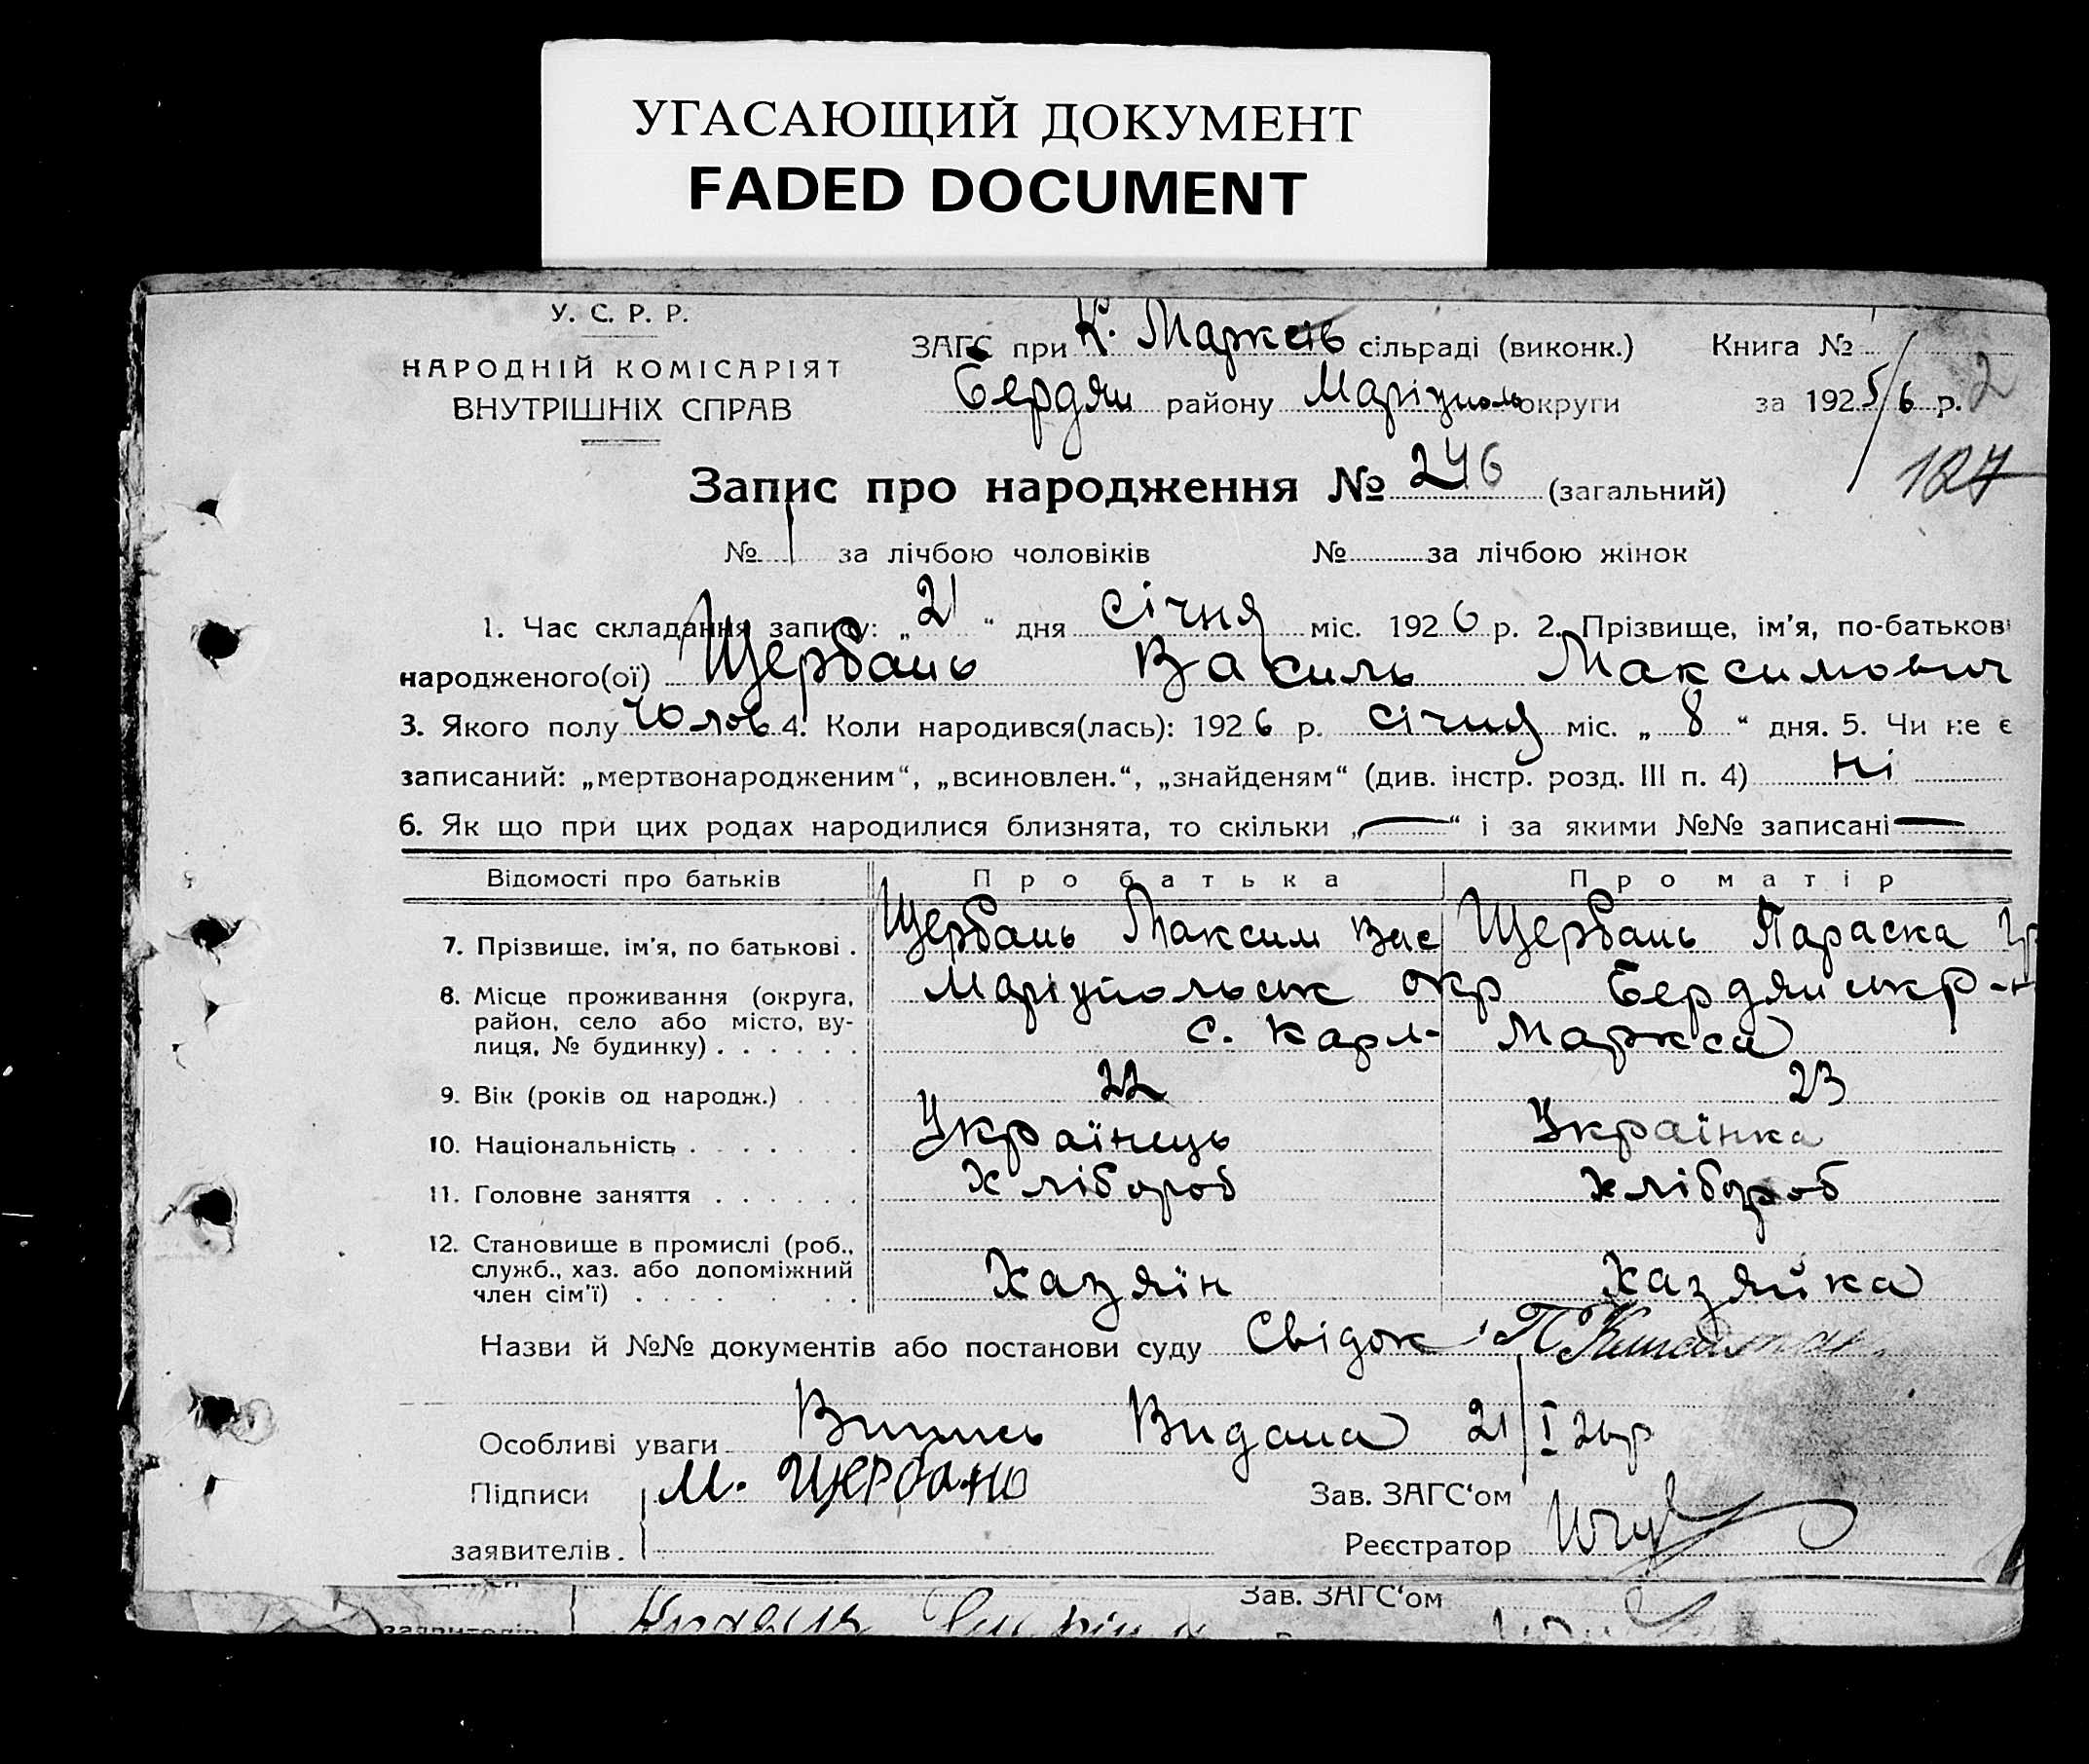 УГАСАЮЩИЙ ДОКУМЕНТ
FADED DOCUMENT
У. С. Р. Р.
НАРОДНІЙ КОМІСАРІЯТ
ВНУТРІШНІХ СПРАВ
ЗАГС при К. Марксів сільраді (виконк.) Книга №
Бердян району Маріуполь округи за 1925/6 р. 2
127
Запис про народження № 246 (загальний)
№ 1 за лічбою чоловіків № за лічбою жінок
1. Час складання запису: „21“ дня січня міс. 1926 р. 2. Прізвище, ім'я, по-батькові
народженого(ої) Щербань Василь Максимович
3. Якого полу Чолов 4. Коли народився(лась): 1926 р. січня міс. „8“ дня. 5. Чи не є
записаний: „мертвонародженим“, „всиновлен.“, „знайденям“ (див. інстр. розд. III п. 4) ні
6. Як що при цих родах народилися близнята, то скільки „—“ і за якими №№ записані —
Відомості про батьків Про батька Про матір
7. Прізвище, ім'я, по батькові . Щербань Максим Вас Щербань Параска Гр
8. Місце проживання (округа, Маріупольськ окр Бердянськ р-н
район, село або місто, ву-
лиця, № будинку) . . . . . . с. Карл-Маркса
9. Вік (років од народж.) . . . 22 23
10. Національність . . . . . . Українець Українка
11. Головне заняття . . . . . . Хлібороб хлібороб
12. Становище в промислі (роб.,
служб., хаз. або допоміжний Хазяїн Хазяйка
член сім'ї) . . . . . .
Назви й №№ документів або постанови суду Свідок П.
Особливі уваги Випись Видана 21/I 26р
Підписи М. Щербань Зав. ЗАГС'ом
заявителів . Реєстратор
Зав. ЗАГС'ом
заявителів